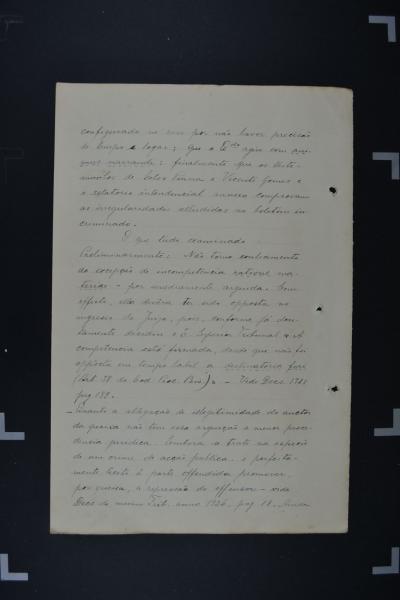 configurado no caso por não haver precisão
de tempo e logar; que o Q.do agiu com ani-
mus narrandi; finalmente que os teste-
munhos de Celso Vianna e Vicente Gomes e
o relatorio intendencial annexo comprovam
as irregularidades alludidas no boletim in-
criminado.
O que tudo examinado
Preliminarmente: Não tomo conhecimento
da excepção de incompetencia ratione ma-
teriae - por arguida. Com
effeito, ella devêra ter sido opposta no
ingresso do Juizo, pois, conforme já dou-
tamente decidiu o E. Superior Tribunal "A
competencia está firmada, desde que não foi
opposta em tempo habil a declinatoria fori
(Art. 38 do Cod. Proc. Pen.)". - Vide Decs. 19
pag. 182.
- Quanto a allegação de illegitimidade do auctor
da queixa não tem essa arguição a menor proce-
dencia juridica. Embora se trate na especie
de um crime de acção publica, é perfeita-
mente licito á parte offendida promover,
por queixa, a repressão do offensor - vide
Decs. do mesmo Trib. anno 1926, pag. 18. Ainda